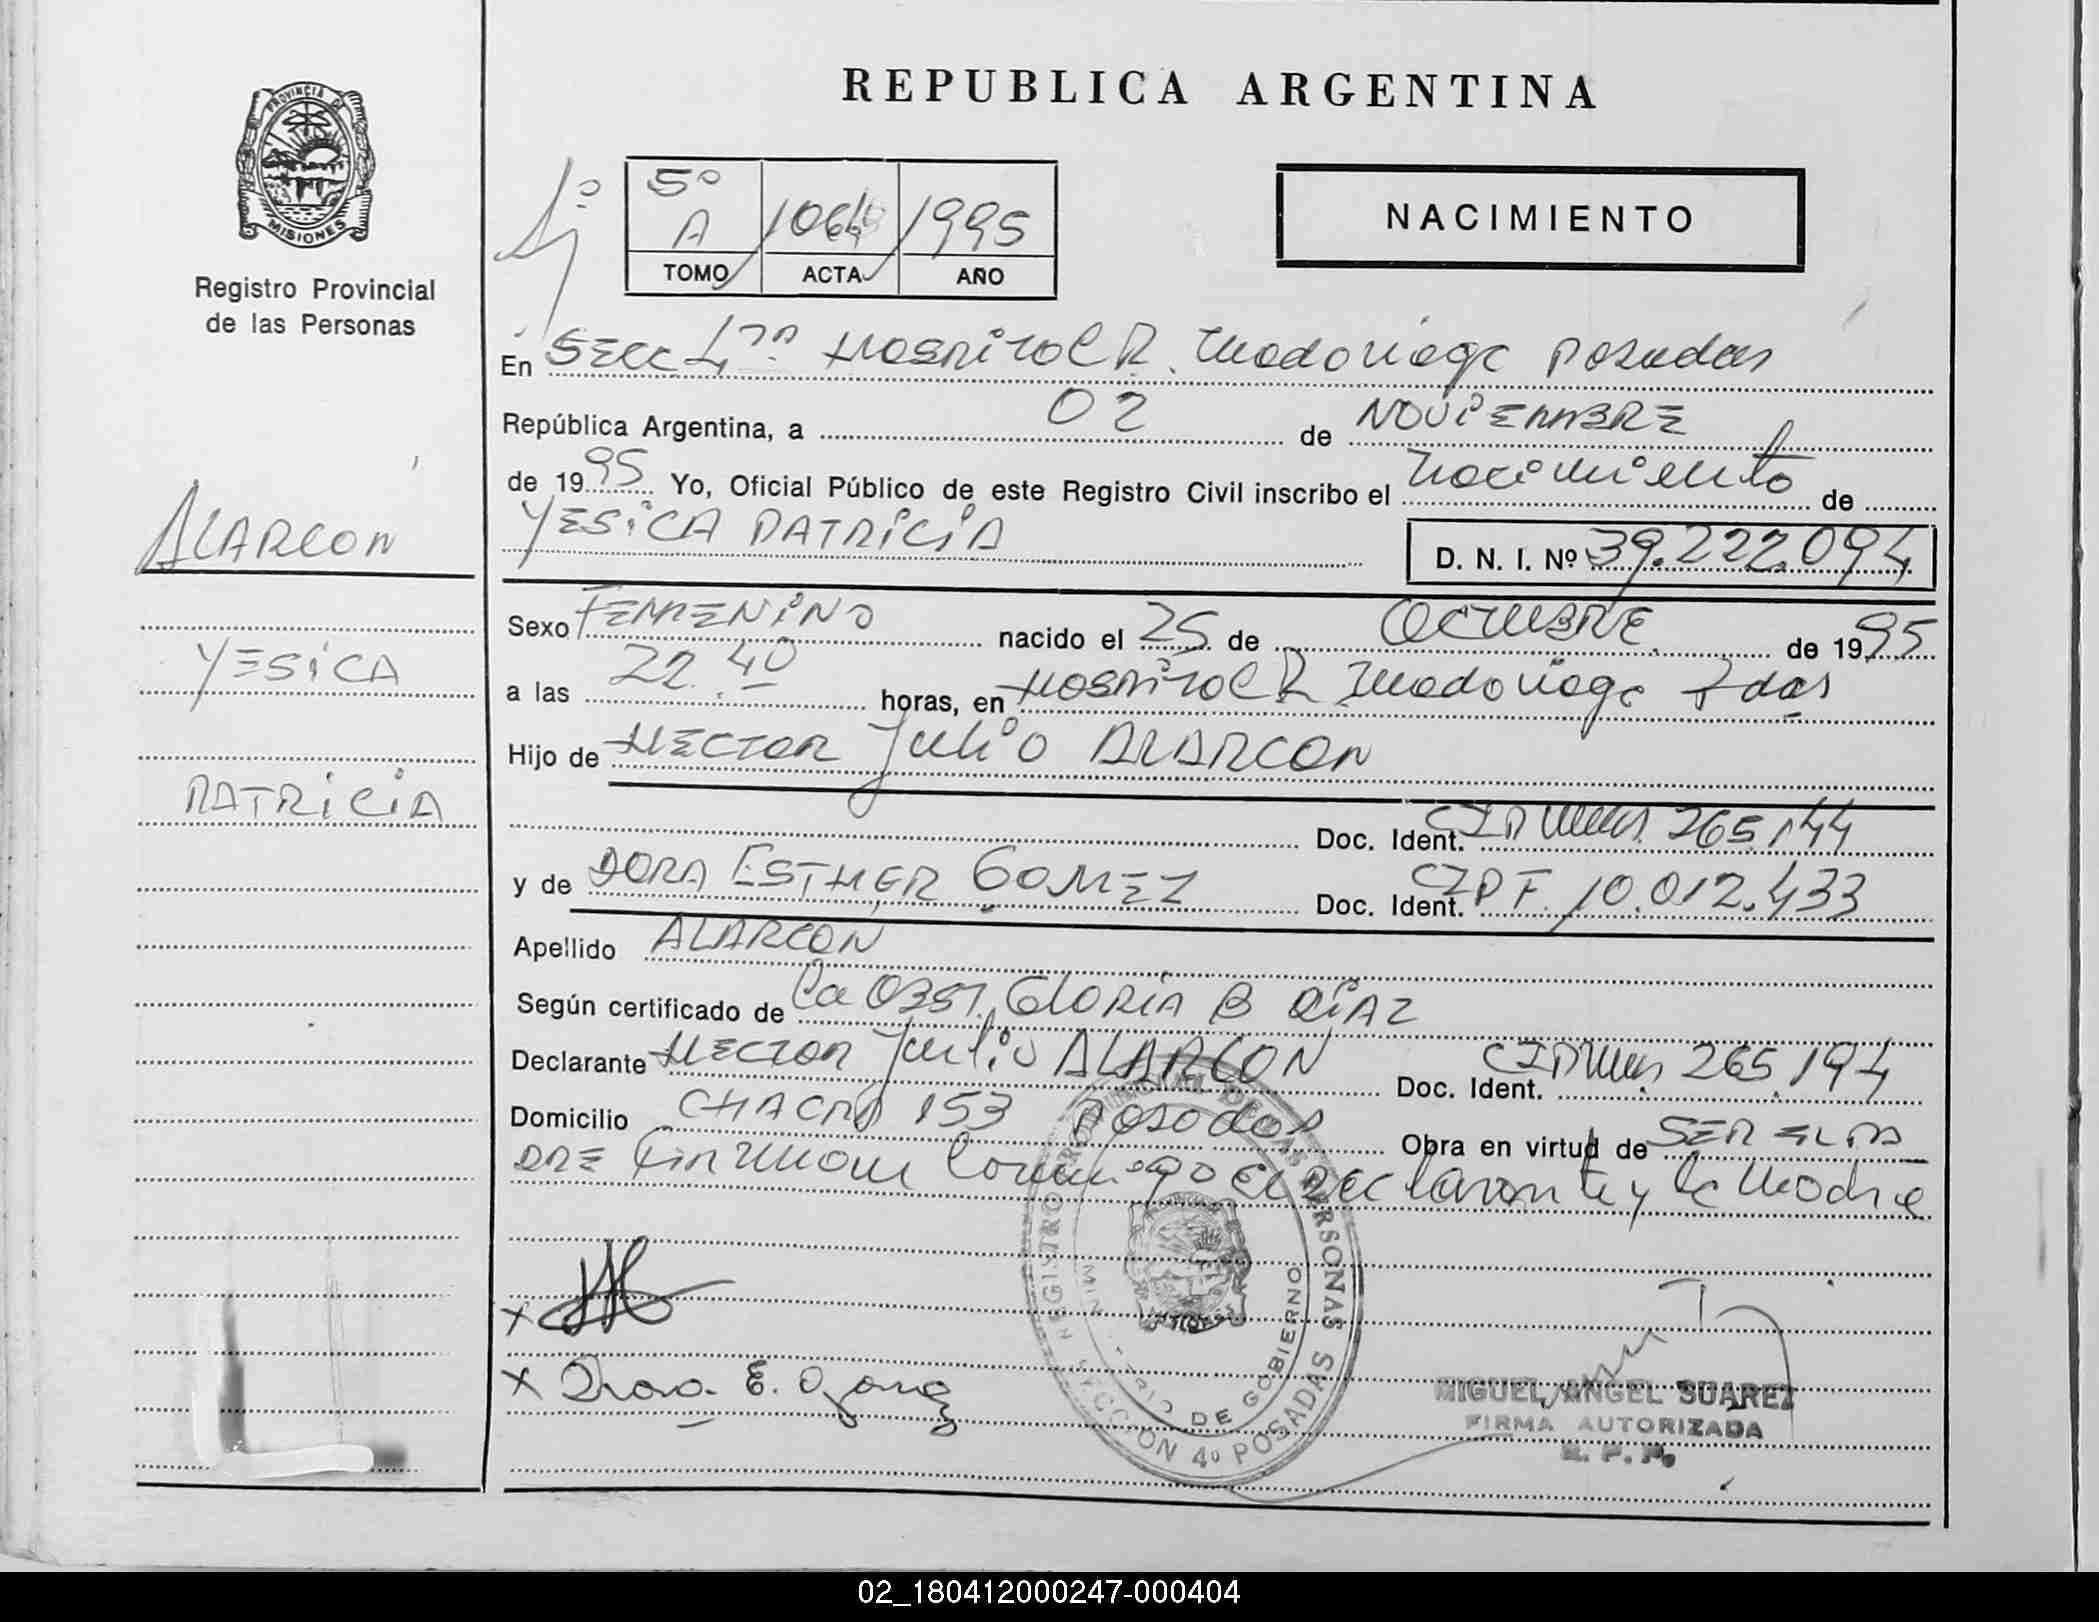 REPUBLICA ARGENTINA
PROVINCIA DE
MISIONES
Registro Provincial
de las Personas
5º
A 1064 1995
TOMO ACTA AÑO
NACIMIENTO
En SECC 4ta HOSPITAL R. Madariaga Posadas
República Argentina, a 02 de NOVIEMBRE
de 1995 Yo, Oficial Público de este Registro Civil inscribo el nacimiento de
YESICA PATRICIA
D. N. I. Nº 39.222.094
ALARCON
YESICA
PATRICIA
Sexo FEMENINO nacido el 25 de OCTUBRE de 1995
a las 22.40 horas, en HOSPITAL R Madariaga Pdas
Hijo de HECTOR Julio ALARCON
Doc. Ident. CIP Mnes 265.144
y de DORA ESTHER GOMEZ Doc. Ident. CIPF. 10.012.433
Apellido ALARCON
Según certificado de Ca 0357 GLORIA B DIAZ
Declarante HECTOR Julio ALARCON Doc. Ident. CIP Mnes 265.194
Domicilio CHACRA 153 Posadas Obra en virtud de SER EL PA
DRE Firman Conmigo El Declarante y la Madre
REGISTRO PROVINCIAL DE LAS PERSONAS
MINISTERIO DE GOBIERNO
SECCION 4º POSADAS
X
X Dora E. Gomez
MIGUEL ANGEL SUAREZ
FIRMA AUTORIZADA
R. P. P.
02_180412000247-000404